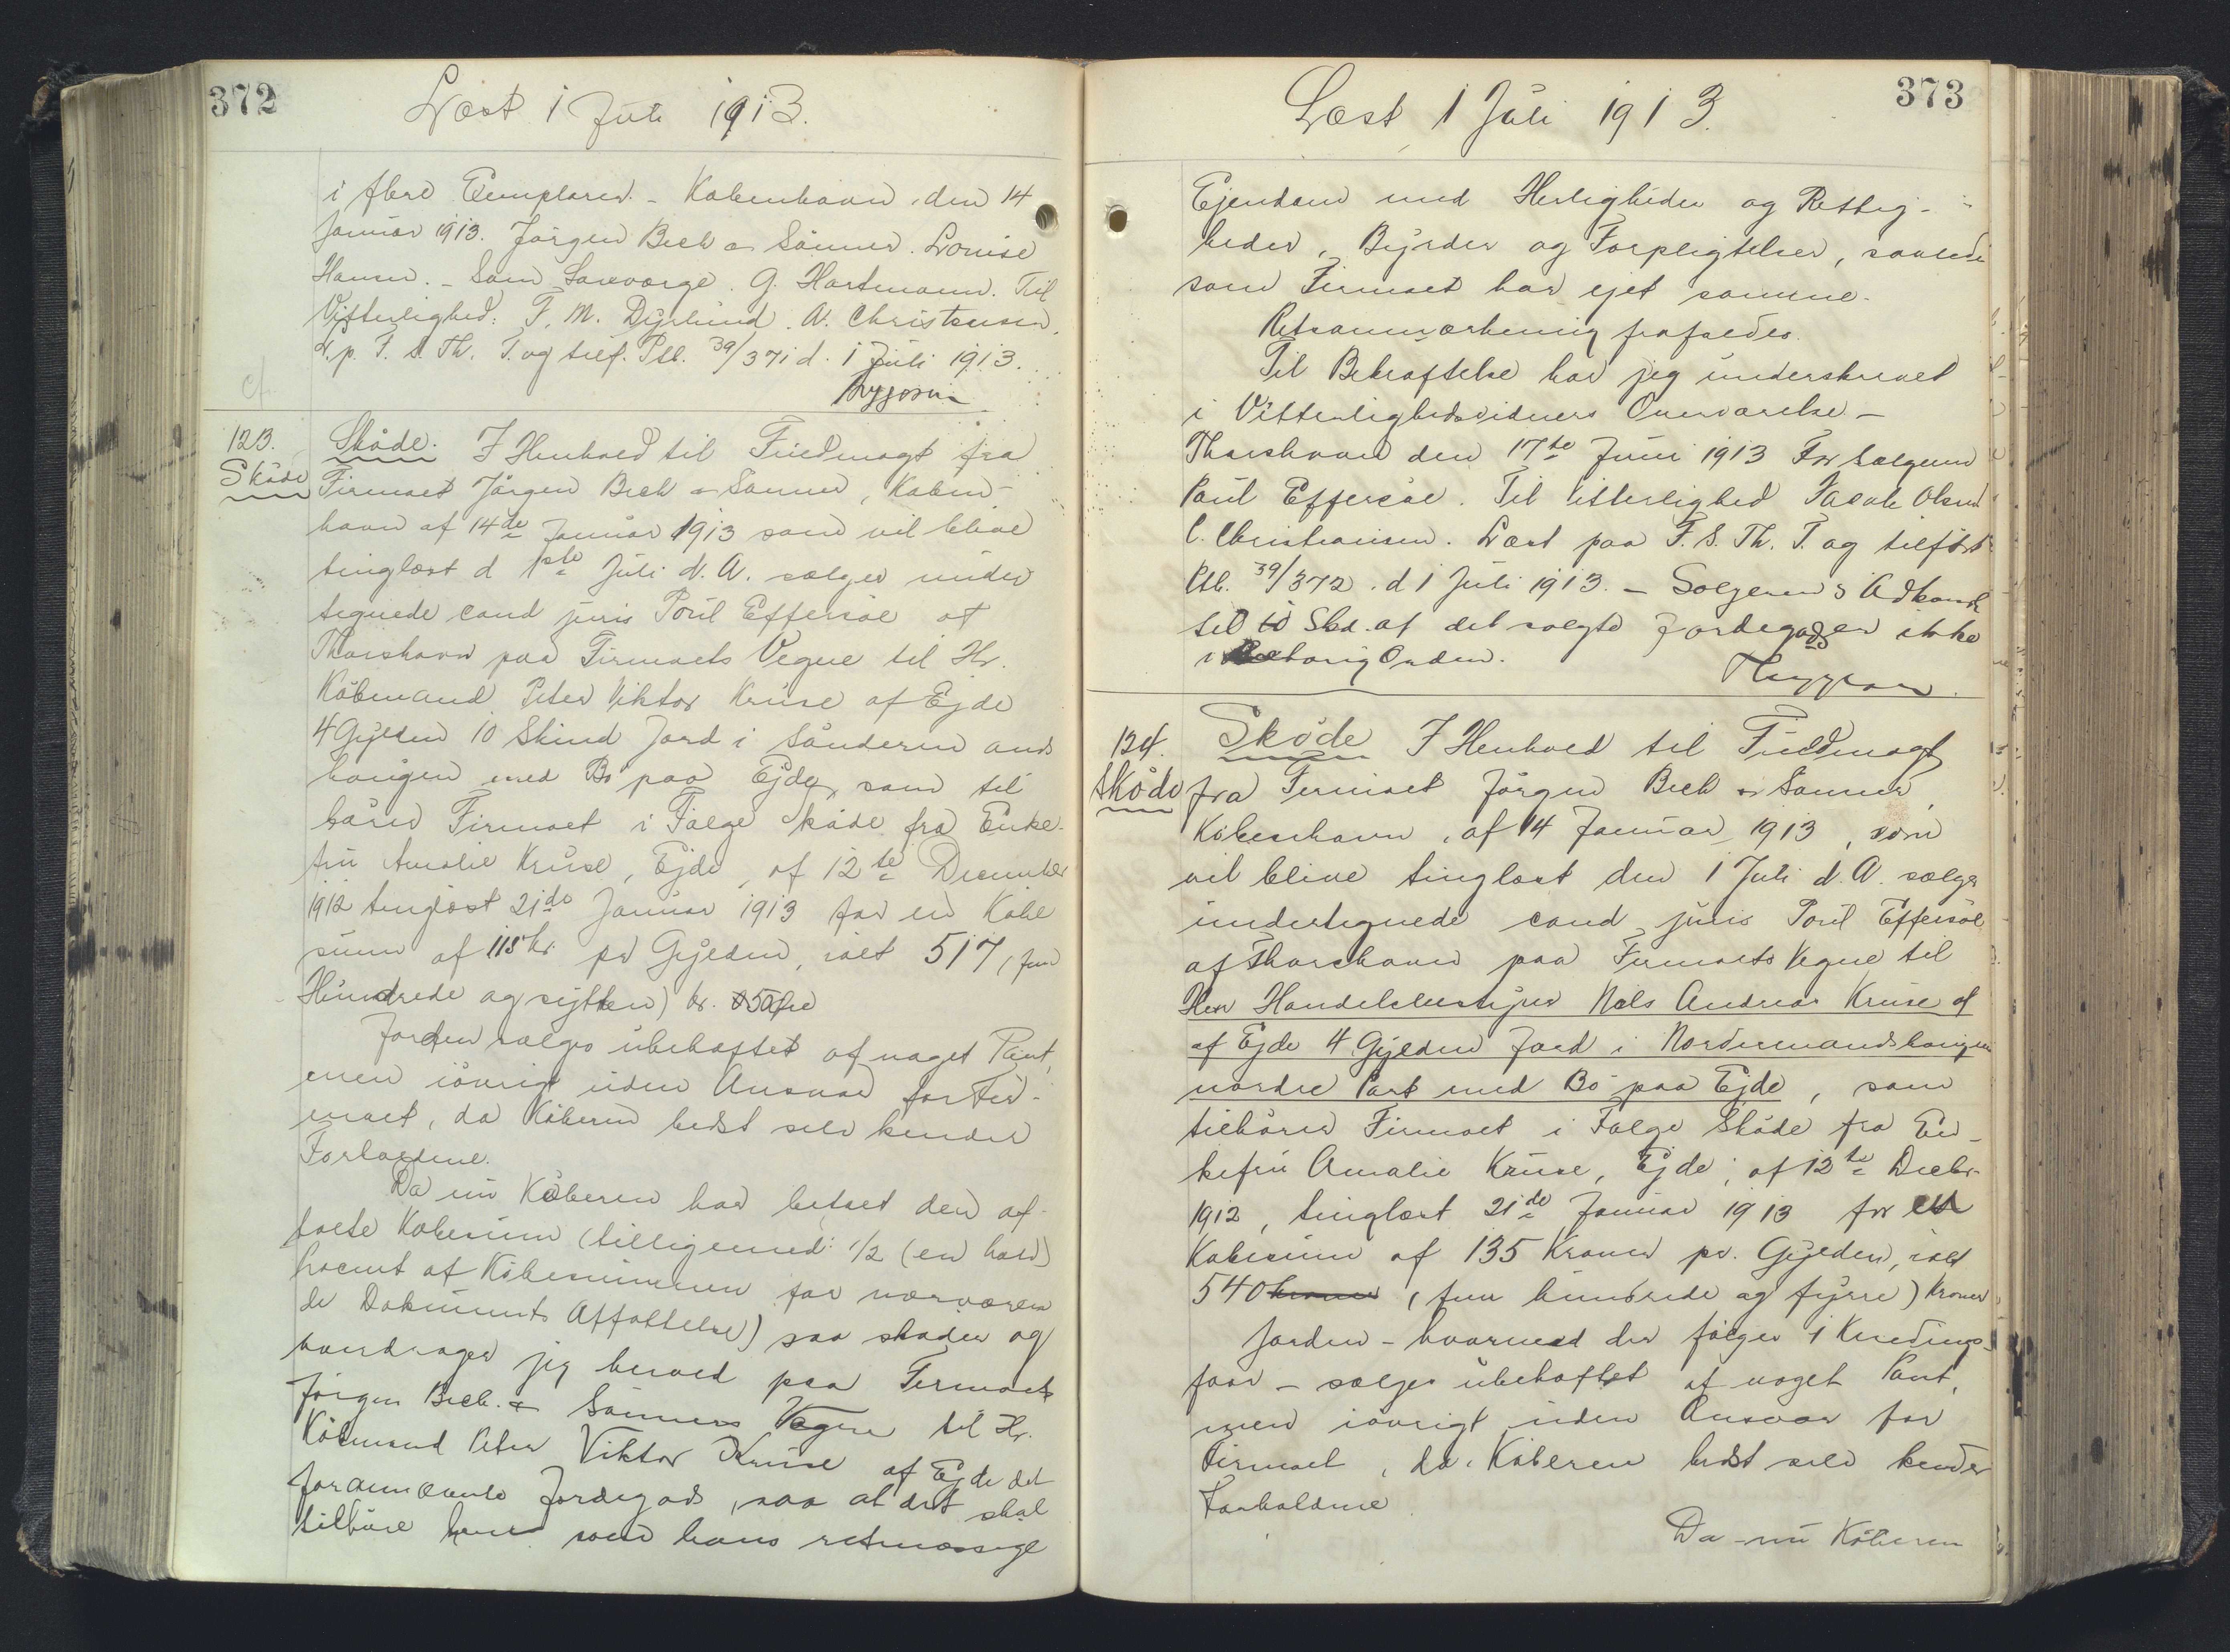 372
Læst 1 Juli 1913.
i flere Exemplarer. - København, den 14
Januar 1913. Jørgen Bech & Sønner. Louise
Hansen. - Som Lavværge. G. Hartmann. Til
Vitterlighed: F. M. Dyrlund. A. Christensen.
L. p. F. S. Th. T. og tilf. Ptb. 39/371 d. 1 Juli 1913.
cf.
123.
Skøde
Skøde. I Henhold til Fuldmagt fra
Firmaet Jørgen Bech & Sønner, Køben-
havn af 14de Januar 1913 som vil blive
tinglæst d 1ste Juli d. A. sælger under
tegnede cand juris Poul Effersøe af
Thorshavn paa Firmaets Vegne til Hr.
Købmand Peter Viktor Kruse af Ejde
4 Gylden 10 Skind Jord i Sønderm ands
haugen med Bø paa Ejde, som til
hører Firmaet i Følge Skøde fra Enke-
fru Amalie Kruse, Ejde, af 12te December
1912 tinglæst 21de Januar 1913 for en Købe
sum af 115 kr. pr Gylden, ialt 517, (fem
Hundrede og sytten) kr. 50 Øre
Jorden sælges ubehæftet af noget Pant,
men iøvrigt uden Ansvar for Fir-
maet, da Køberen bedst selv kender
Forholdene.
Da nu Køberen har betalt den af-
talte Købesum (tilligemed: 1/2 (en halv)
Procent af Købesummen for nærværen
de Dokuments Affattelse) saa skøder og
hændrager jeg herved paa Firmaets
Jørgen Bech & Sønners Vegne til Hr.
Købmand Peter Viktor Kruse af Ejde det
forannævnte Jordegods, saa at det skal
tilhøre ham som hans retmæssige
373
Læst 1 Juli 1913.
Ejendom med Herligheder og Rettig-
heder, Byrder og Forpligtelser, saaledes
som Firmaet har ejet samme.
Retsanmærkning frafaldes.
Til Bekræftelse har jeg underskrevet
i Vitterlighedsvidners Overværelse -
Thorshavn den 17de Juni 1913 For Sælgeren
Poul Effersøe. Til Vitterlighed Jacob Olsen
C. Christiansen. Læst paa F. S. Th. T. og tilført
Ptb. 39/372. d 1 Juli 1913. - Sælgerens Adkomst
til 10 Skd. af det solgte Jordegods er ikke
i behørig Orden.
124.
Skøde
Skøde I Henhold til Fuldmagt
fra Firmaet Jørgen Bech & Sønner,
København, af 14 Januar 1913, som
vil blive tinglæst den 1 Juli d. A. sælger
undertegnede cand juris Poul Effersøe
af Thorshavn paa Firmaets Vegne til
Herr Handelsbestyrer Niels Andreas Kruse af
af Ejde 4 Gylden Jord i Nordermandshaugen
nordre Part med Bø paa Ejde, som
tilhører Firmaet i Følge Skøde fra En-
kefru Amalie Kruse, Ejde, af 12te Decbr.
1912, tinglæst 21de Januar 1913 for en
Købesum af 135 Kroner pr. Gylden, ialt
540 kroner (fem hundrede og fyrre) Kroner
Jorden - hvormed der følger 1 Kvedings-
faar - sælges ubehæftet af noget Pant,
men iøvrigt uden Ansvar for
Firmaet, da Køberen bedst selv kender
Forholdene
Da nu Køberen